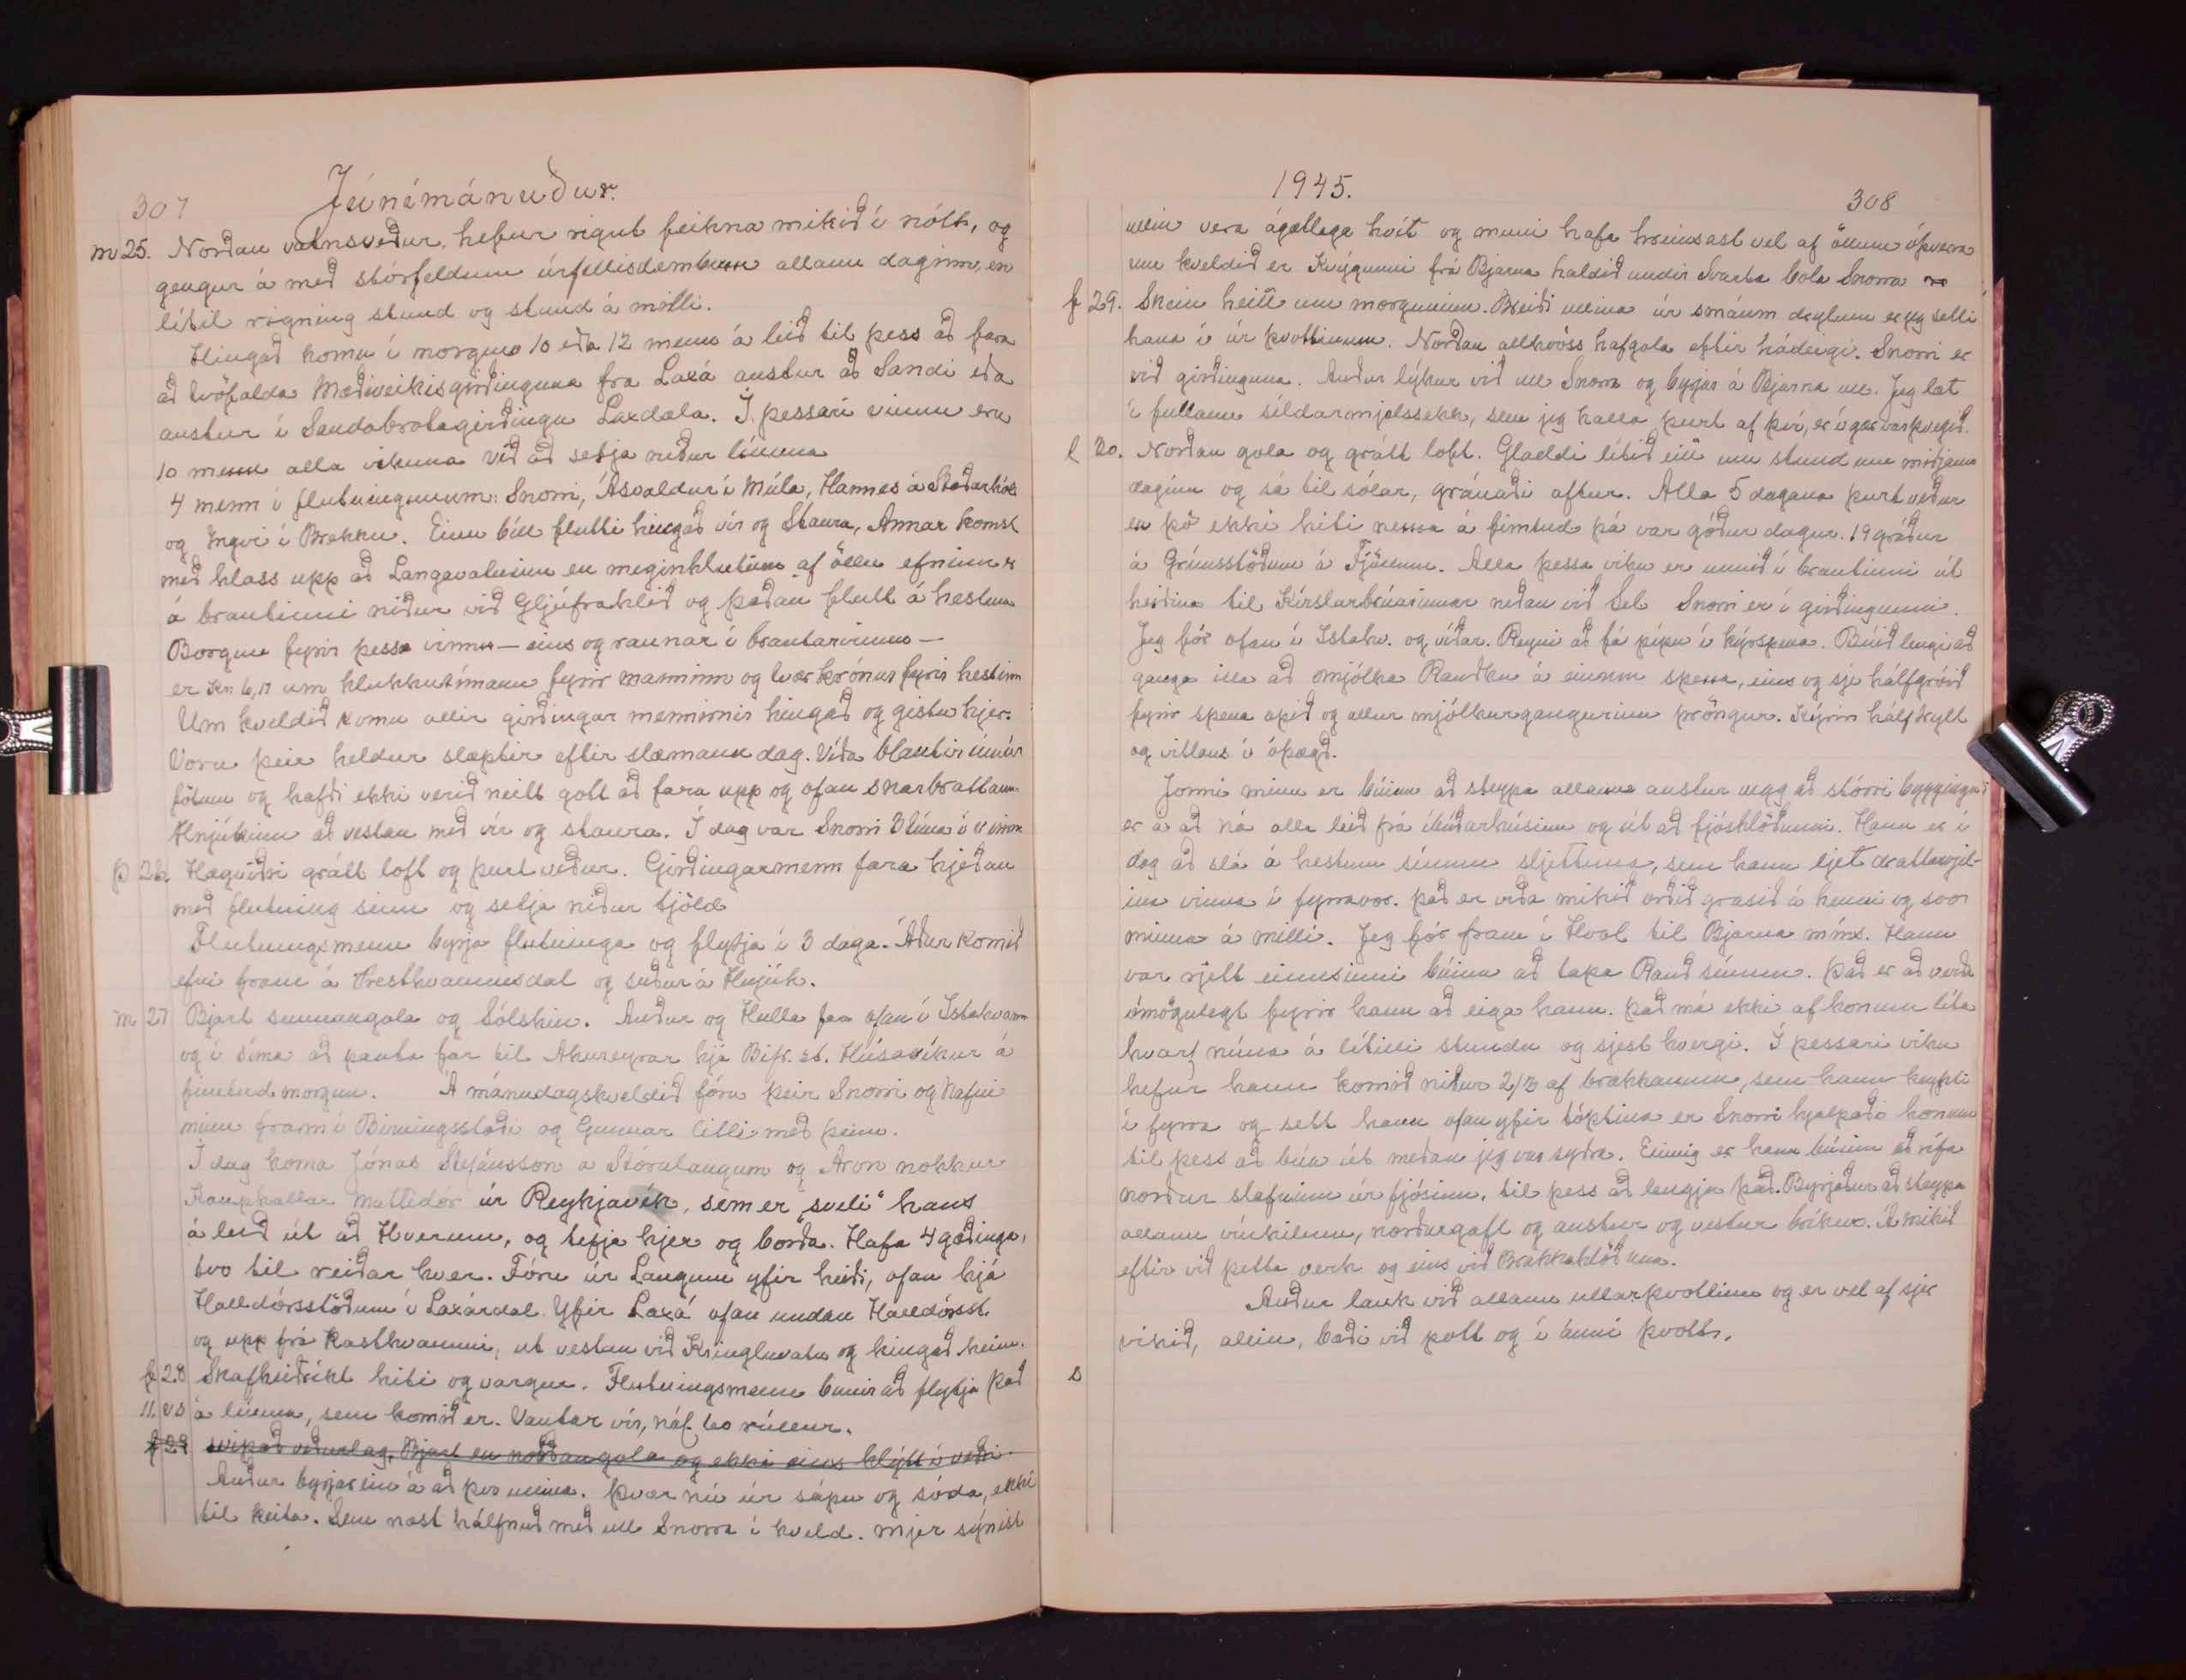 307 Júnímánuður.
m 25. Norðan vatnsveður, hefur rignt feikna mikið í nótt, og
gengur á með stórfeldum úrfellisdembum allann daginn, en
lítil rigning stund og stund á milli.
Hingað komu í morgun 10 eða 12 menn á leið til þess að fara
að tvöfalda Mæðiveikisgirðinguna frá Laxá austur að Sandi eða
austur í Sandabrotagirðingu Laxdæla. Í þessari vinnu eru
10 menn alla vikuna við að setja niður línuna
4 menn í flutningnum: Snorri, Ásvaldur í Múla, Hannes á Staðarhóli
og Ingvi í Brekku. Einn bíll flutti hingað vír og Staura, Annar komst
með hlass upp að Langavatninu en meginhlutinn af öllu efninu er
á brautinni niður við Gljúfrahlið og þaðan flutt á hestum
Borgun fyrir þessa vinnu — eins og raunar í brautarvinnu —
er Kr. 6,17 um klukkutímann fyrir manninn og tvær krónur fyrir hestinn
Um kveldið komu allir girðingar mennirnir hingað og gistu hjer.
Voru þeir heldur slæptir eftir slæmann dag. Víða blautir
fötum og hafði ekki verið neitt gott að fara upp og ofan snarbrattann
Hnjúkinn að vestan með vír og staura. Í dag var Snorri 3 tíma í vinnu
þ 26. Hægviðri grátt loft og þurt veður. Girðingarmenn fara hjeðan
með flutning sinn og setja niður tjöld
Flutningsmenn byrja flutninga og flytja í 3 daga. Áður komið
efni fram á Presthvammsdal og suður á Hnjúk.
m 27 Bjart sunnangola og Sólskin. Auður og Hulla fara ofan í Ystahvamm
og í síma að panta far til Akureyrar hjá Bifr. st. Húsavíkur á
fimtud. morgun. Á mánudagskveldið fóru þeir Snorri og Nafni
minn fram í Birningsstaði og Gunnar litli með þeim.
Í dag koma Jónas Stefánsson a Stórulaugum og Aron nokkur
Kaupkallar úr Reykjavík, sem er „sveli" hans
á leið út að Hverum, og tefja hjer og borða. Hafa 4 gæðinga,
tvo til reiðar hver. Fóru úr Laugum yfir heiði, ofan hjá
Halldórsstöðum í Laxárdal. Yfir Laxá ofan undan Halldórsst.
og upp frá Kasthvammi, út vestan við Kringluvatn og hingað heim.
f 28 Skafheiðríkt hiti og vargur. Flutningsmenn bunir að flytja það
11. vs á línuna, sem komið er. Vantar vír, náf. 60 rúllur.
f 29 svipað veðurlag, Bjart en norðangola og ekki eins hlýtt í veðri
Auður byrjar ein á að þvo ullina. Þvær nú úr sápu og sóda, ekki
til keita. Sem næst hálfnuð með ull Snorra í kveld. Mjer sýnist
1945. 308
ullin vera ágætlega hvít og muni hafa hreinsast vel af öllum óþverra
um kveldið er Kvígunni frá Bjarna haldið undir Svarta bola Snorra
f 29. Skein heitt um morguninn. Breiði ullina úr smáum dyljum er jeg setti
hana í úr þvottinum. Norðan allhvöss hafgola eftir hádegi. Snorri er
við girðinguna. Auður lýkur við ull Snorra og byrjar á Bjarna ull. Jeg læt
í fullann síldarmjölssekk, sem jeg kalla þurt af því, er í gær var þvegið.
l 30. Norðan gola og grátt loft. Glaðdi lítið eitt um stund um miðjann
daginn og sá til sólar, gránaði aftur. Alla 5 dagana þurt veður
en þó ekki hiti nema á fimtud þá var góður dagur. 19 gráður
á Grímsstöðum á Fjöllum. Alla þessa viku er unnið í brautinni út
heiðina til Kírslarbrúarinnar neðan við Sel Snorri er í girðingunni.
Jeg fór ofan í Ystahv. og víðar. Reyni að fá pípu í kýrspena. Búið lengi að
ganga illa að mjólka Rauðku á einum spena, eins og sje hálfgróið
fyrir spena opið og allur mjólkurgangurinn þröngur. Kýrin hálftrylt
og vitlaus í óþægð.
Jonni minn er búinn að steypa allann austur vegg að stórri byggingu
er á að ná alla leið frá íbúðarhúsinu og út að fjóshlöðunni. Hann er í
dag að slá á hestum sínum sljettuna, sem hann ljet drattarvjel-
ina vinna í fyrravor. Það er víða mikið orðið grasið á henni og svo
minna á milli. Jeg fór fram í Hvol til Bjarna míns. Hann
var rjett einusinni búinn að tapa Rauð sínum. Það er að verða
ómögulegt fyrir hann að eiga hann. Það má ekki af honum líta
hvarf núna á lítilli stundu og sjest hvergi. Í þessari viku
hefur hann komið niður 2/3 af brakkanum, sem hann keypti
í fyrra og sett hann ofan yfir tóptina er Snorri hjalpaði honum
til þess að búa út meðan jeg var syðra. Einnig er hann búinn að rífa
norður stafninn úr fjósinu, til þess að lengja það. Byrjaður að steypa
allann vínkilinn, norðurgafl og austur og vestur bríkur. Á mikið
eftir við þetta verk og eins við Brakkahlöðuna.
Auður lauk við allann ullarþvottinn og er vel af sjer
vikið, allein, bæði við pott og í ánni þvott.
s